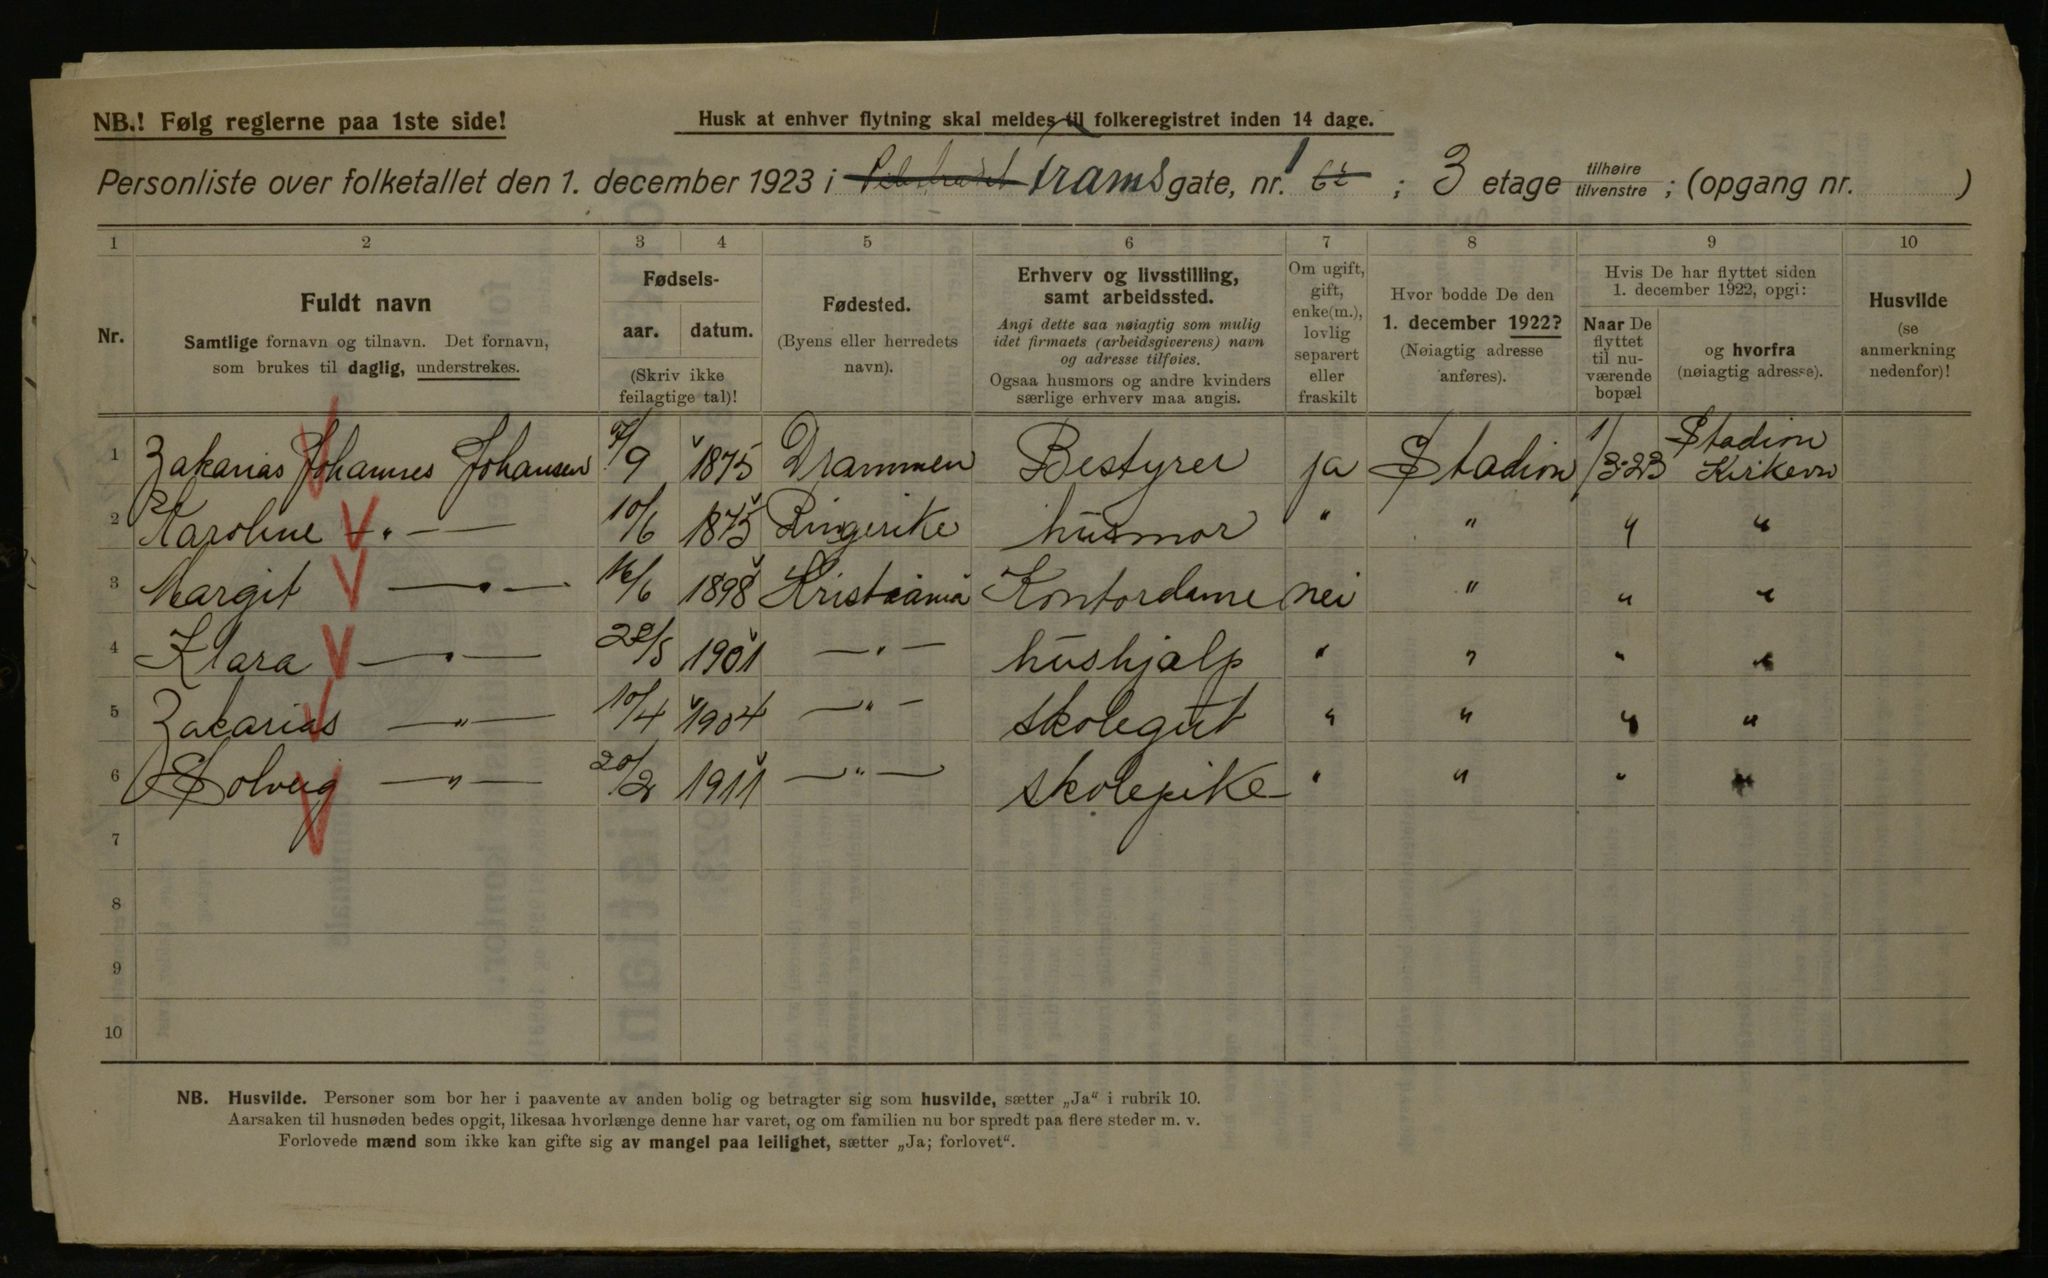 NB.! Følg reglerne paa 1ste side!
Husk at enhver flytning skal meldes til folkeregistret inden 14 dage.
Personliste over folketallet den 1. december 1923 i Frams gate, nr. 1 62 ; 3 etage tilhøire tilvenstre ; (opgang nr. )
1 2 3 4 5 6 7 8 9 10
Nr.
Fuldt navn
Samtlige fornavn og tilnavn. Det fornavn,
som brukes til daglig, understrekes.
Fødsels-
aar. datum.
(Skriv ikke
feilagtige tal)!
Fødested.
(Byens eller herredets
navn).
Erhverv og livsstilling,
samt arbeidssted.
Angi dette saa nøiagtig som mulig
idet firmaets (arbeidsgiverens) navn
og adresse tilføies.
Ogsaa husmors og andre kvinders
særlige erhverv maa angis.
Om ugift,
gift,
enke(m.),
lovlig
separert
eller
fraskilt
Hvor bodde De den
1. december 1922?
(Nøiagtig adresse
anføres).
Hvis De har flyttet siden
1. december 1922, opgi:
Naar De
flyttet
til nu-
værende
bopæl
og hvorfra
(nøiagtig adresse).
Husvilde
(se
anmerkning
nedenfor)!
1 Zakarias Johannes Johansen /9 1875 Drammen Bestyrer ja Stadion 1/3-23 Stadion
Kirkevn
2 Karoline — " — 10/6 1875 Ringerike husmor " " " "
3 Margit — " — 16/6 1898 Kristiania Kontordame nei " " "
4 Klara — " — 22/5 1901 — " — hushjælp " " " "
5 Zakarias — " — 10/4 1904 — " — skolegut " " " "
6 Solveig — " — 20/2 1911 — " — skolepike " " " "
7
8
9
10
NB. Husvilde. Personer som bor her i paavente av anden bolig og betragter sig som husvilde, sætter „Ja“ i rubrik 10.
Aarsaken til husnøden bedes opgit, likesaa hvorlænge denne har varet, og om familien nu bor spredt paa flere steder m. v.
Forlovede mænd som ikke kan gifte sig av mangel paa leilighet, sætter „Ja; forlovet“.